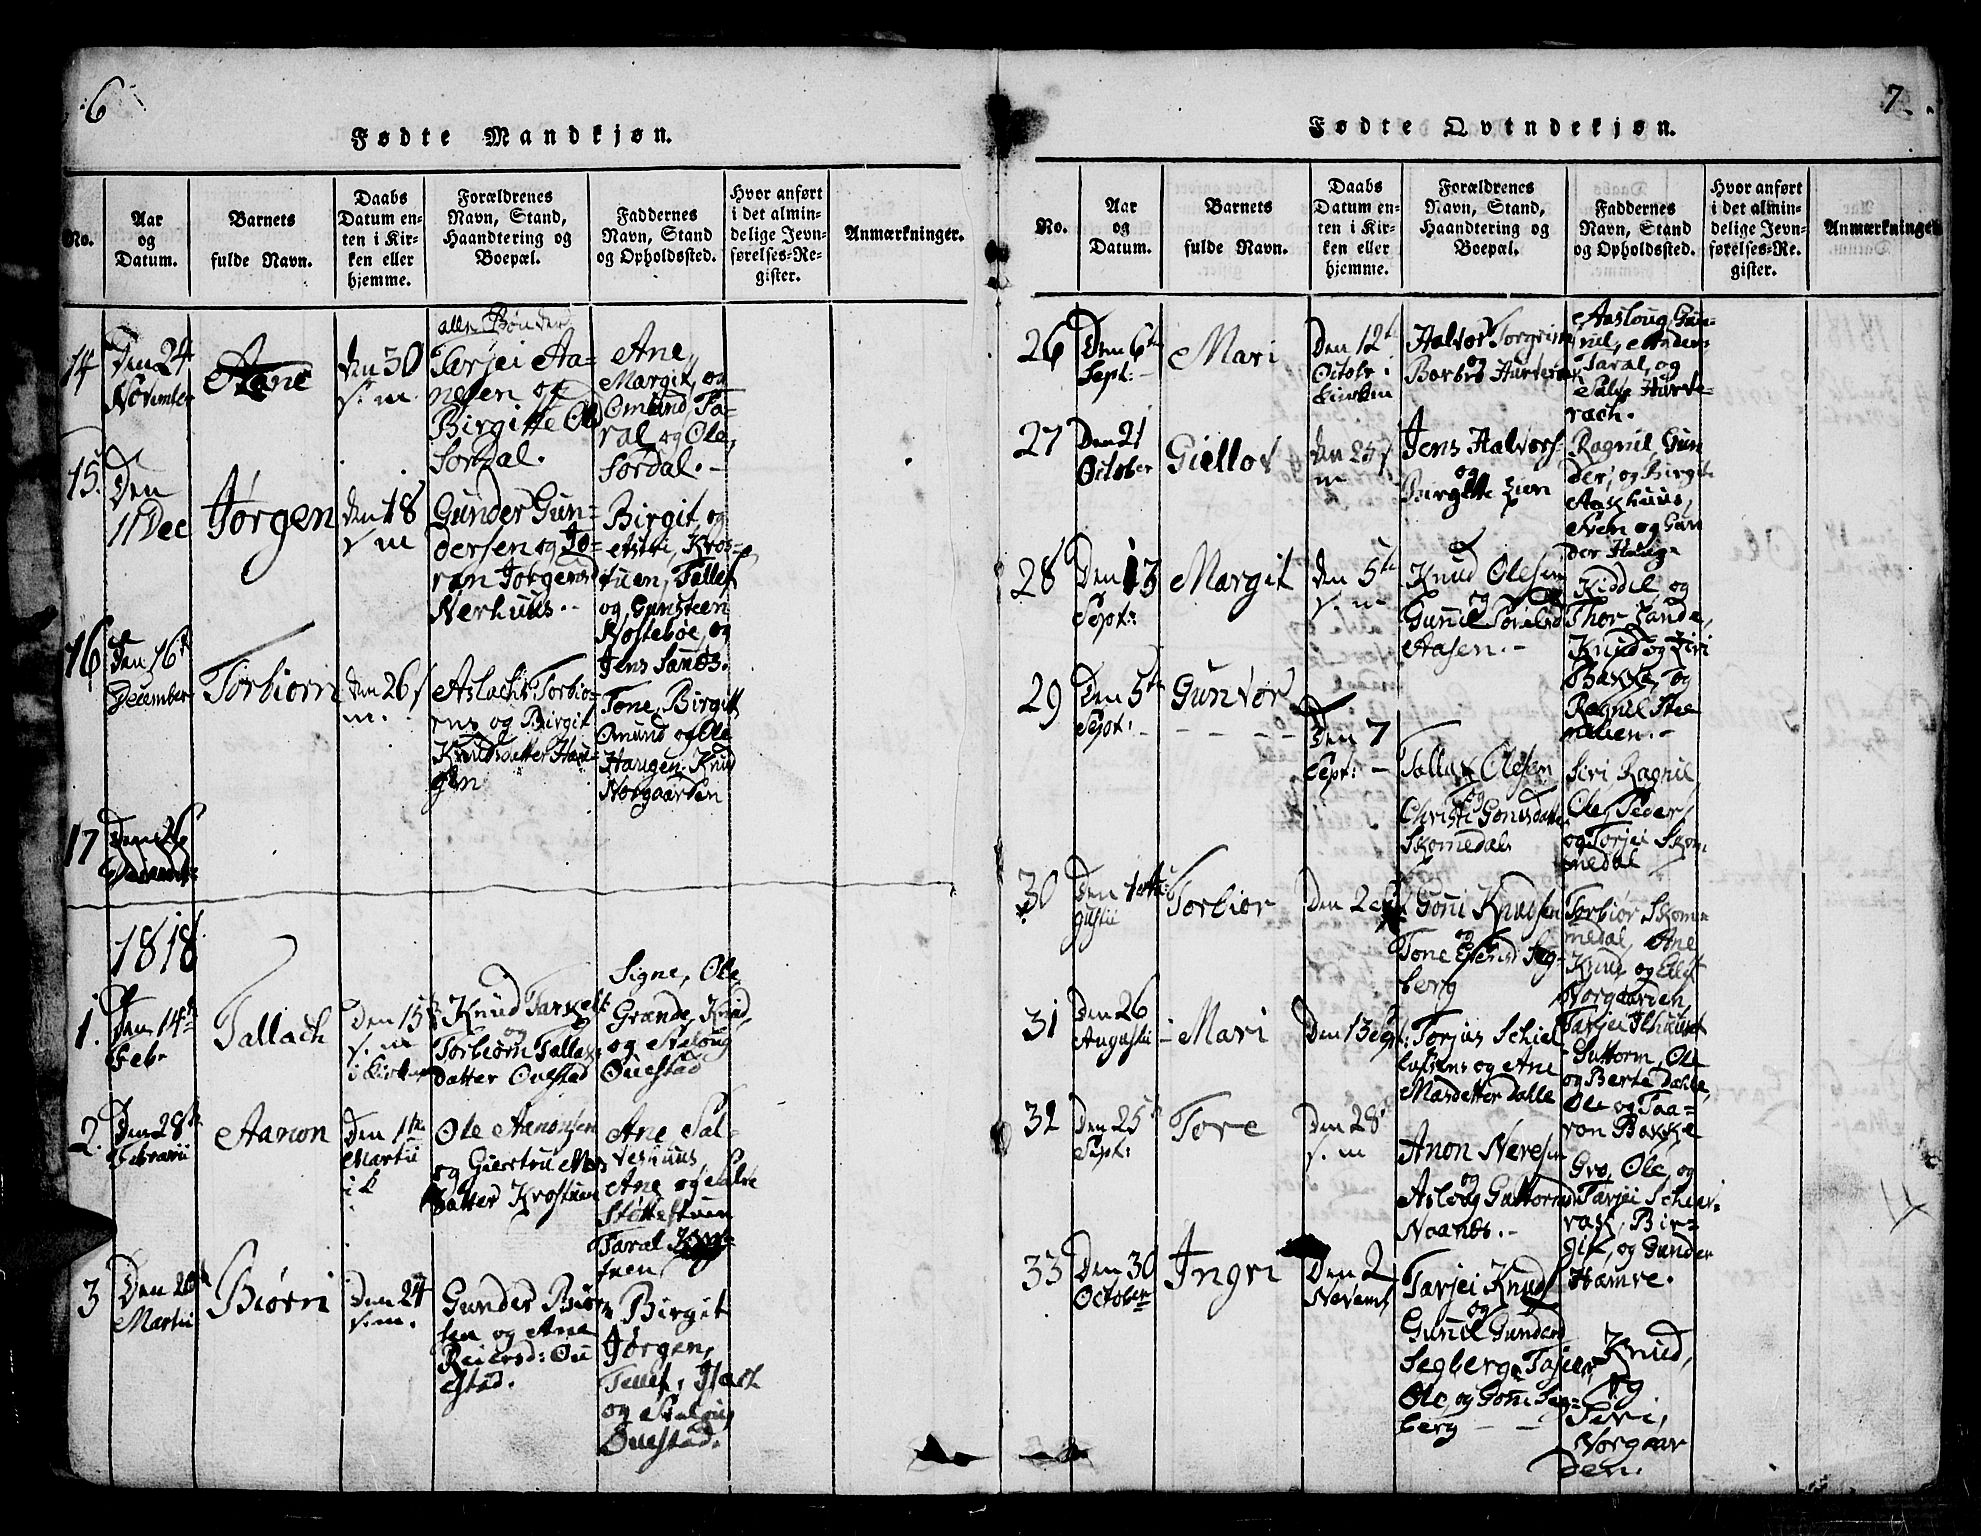 6
Fødte Mandkjøn.
No.
Aar
og
Datum.
Barnets
fulde Navn.
Daabs
Datum en-
ten i Kir-
ken eller
hjemme.
Forældrenes
Navn, Stand,
Haandtering og
Boepæl.
Faddernes
Navn, Stand
og Opholdssted.
Hvor anført
i det almin-
delige Jevn-
førelses-Re-
gister.
Anmærkninger.
14
Den 24
November
Aane
den 30
s. m.
alle Bønder
Tarjei Aa-
nesen og
Birgitte Ol
Sordal.
Ane,
Margit, og
Omund Ta-
ral og Ole,
Sordal. -
15.
Den
11 Dec
Jørgen
den 18
s. m
Gunder Gun-
dersen og Jo-
ran Jørgensd
Nerhuus. -
Birgit, og
Kros-
tuen, Tallef
og Gunsteen
Nostebøe, og
Jens Sands.
16
Den 16t
December
Torbiorn
den 26 s
m.
Aslach Torbio-
rns og Birgit
Knudsdatter Hau-
gen
Tone, Birgit
Omund og Ole
Haugen. Knud
Norgaarden
17
Den 26
1818.
1.
Den 14de
Febr
Tallach
Den 15
s. m
i Kirken
Knud Tarkels
og
Torbiørn Tallas
datter Ouestad
Signe, Ole
Grande, Knud,
og Aaloug
Ouestad
2.
Den 28de
Februarii
Aanon
Den 1te
Martii
i k
Ole Aanonsen
og Giertru
datter Krostuen
Ane Sal-
veshuus
Ane og Salve
Støllestuen
Taral Kros-
tuen,
3
Den 20de
Martii
Biørn
Den 24
s. m.
Gunder Biør
sen og Ane
Reiersd: Ou
estad.
Birgit
Jørgen,
Tellef,
og Aaloug
Ouestad.
7
Fødte Qvindekjøn.
No.
Aar
og
Datum.
Barnets
fulde Navn.
Daabs
Datum en-
ten i Kir-
ken eller
hjemme.
Forældrenes
Navn, Stand,
Haandtering og
Boepæl.
Faddernes
Navn, Stand
og Opholdssted.
Hvor anført
i det almin-
delige Jevn-
førelses-Re-
gister.
Anmærkninger
26
Den 6te
Sept: -
Mari
Den 12t
Octobr i
kirken
Halvor Torgrims
og
Barbro Hurverak
Aasloug, Gun-
nil, Anders
Taral, og
Hurve-
rach.
27
Den 21
October
Giellov
den 25 s
m
Jens Halvors
og
Birgitte Lien
Ragnil, Gun
der, og Birgit
Aashuus,
Sven og Gun
der Haug-
28
Den 13
Sept:
Margit
den 5te
s. m
Knud Olesen
og
Gunil
Aasen. -
Kiddel, og
Thor Lande,
Knud og Siri
Bakke, og
Ragnil Stee
29
Den 5te
Sept: -
Gunvor
Den 7
Sept: -
Tallak Olesen
og
Christi Gonisdatter
Skomedals
Siri Ragnil
Ole, Peder
og Torjei Skom
medal
30
Den 1 Au-
gustii
Torbior
Gonni Knudsen
og
Tone Seg-
berg
Torbiør Skom-
medal, Ane
Knud og
Norgaarden
31
Den 26
Augustii
Mari
Den 13
Torjus Schiel
og Ane
Masdetter Dalle
Tarjei
Guttorm, Ole
og Berte Dahle,
Ole og Taa-
ron Bakke
32
Den 25te
Sept:
Tore
Den 28
s. m
Anon Neresen
og
Asloug Guttormsd
Noands. -
Gro, Ole, og
Tarjei
Bir-
git, og Gunder
Hamre.
33
Den 30
October
Ingri
Den 2
Novemb
Tarjei Knuds
og
Gunil Gunders
Segberg
Ole, og Gonni Seg-
berg
Knud,
og
Siri,
Norgaar
den.